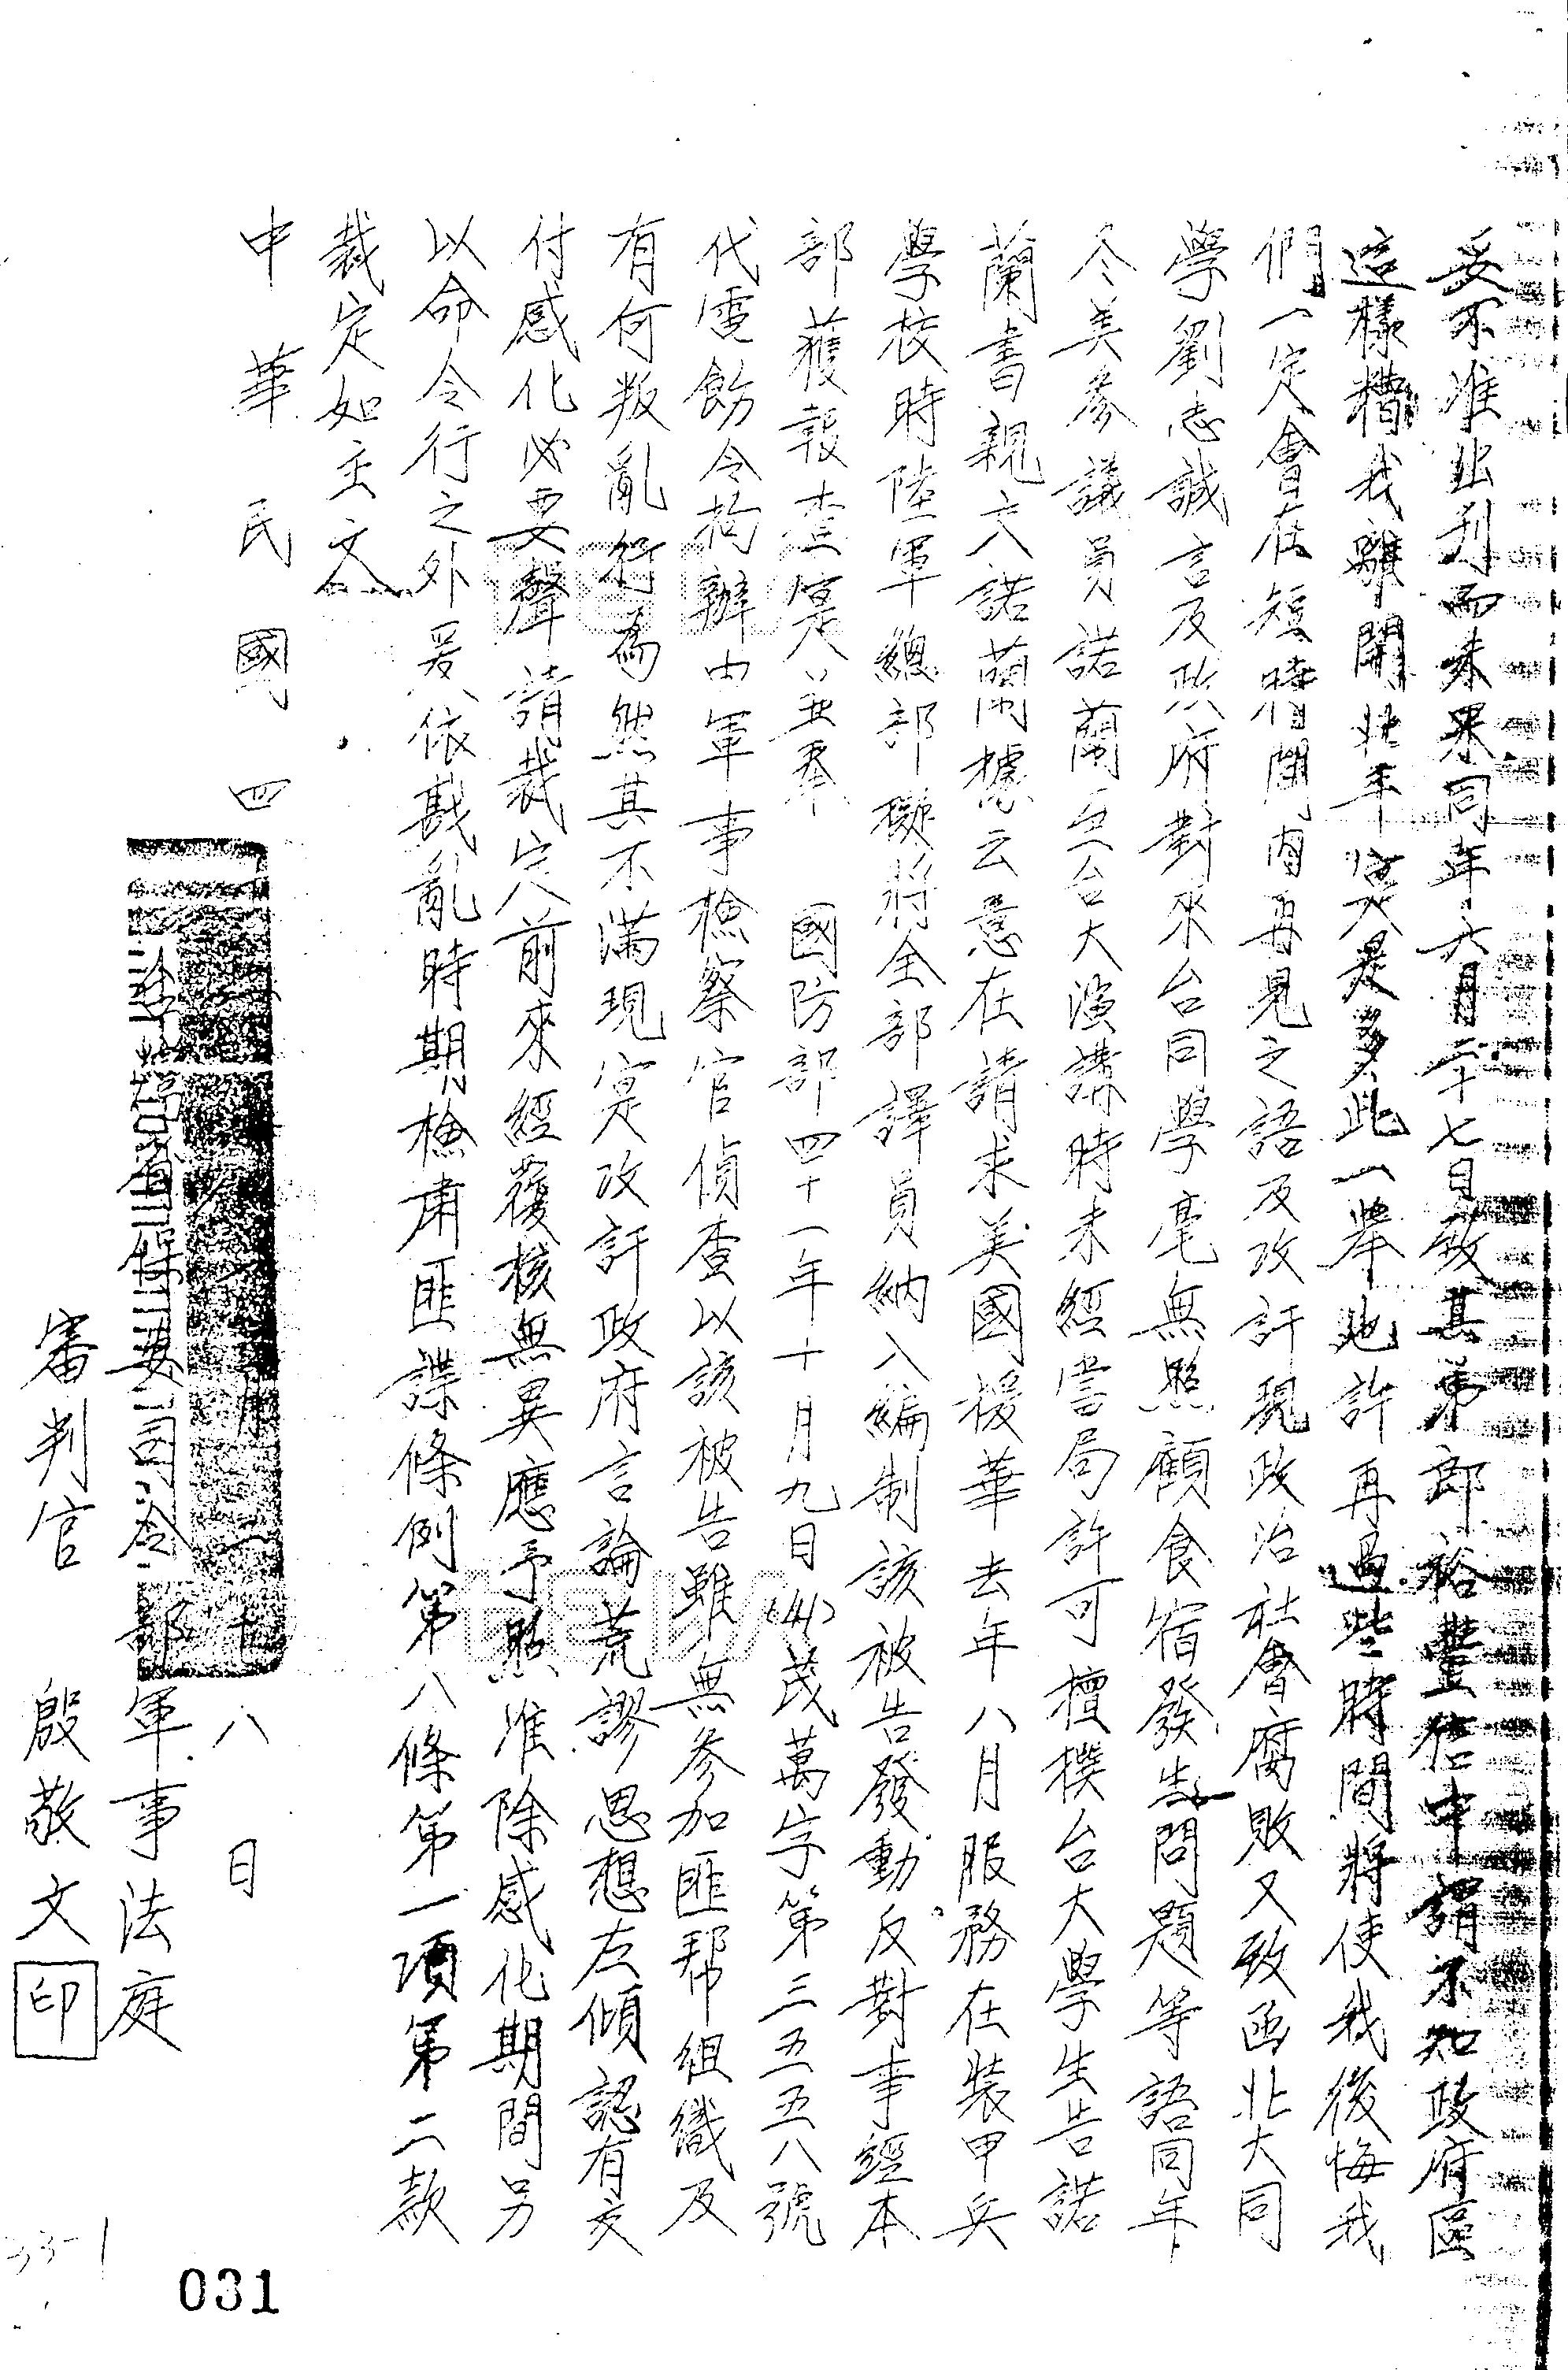 妥不准出刊而未果同年六月二十七日致其弟郎裕豐信中謂不知政府區
這樣糟我離開北平實是多此一舉也許再過些時間將使我後悔我
們一定會在短時間內再見之語及攻訐現政治社會腐敗又致函北大同
學劉志誠言及政府對來台同學毫無照顧食宿發生問題等語同年
冬美參議員諾蘭至台大演講時未經當局許可擅撰台大學生告諾
蘭書親交諾蘭據云意在請求美國援華去年八月服務在裝甲兵
學校時陸軍總部擬將全部譯員納入編制該被告發動反對事經本
部獲報查實並奉 國防部四十一年十月九日(41)茂萬字第三五五八號
代電飭令拘辦由軍事檢察官偵查以該被告雖無參加匪幫組織及
有何叛亂行為然其不滿現實攻訐政府言論荒謬思想左傾認有交
付感化必要聲請裁定前來經覆核無異應予照准除感化期間另
以命令行之外爰依戡亂時期檢肅匪諜條例第八條第一項第二款
裁定如主文
中華民國四 二十八日
台灣省保安司令部軍事法庭
審判官 殷敬文 印
031
33-1